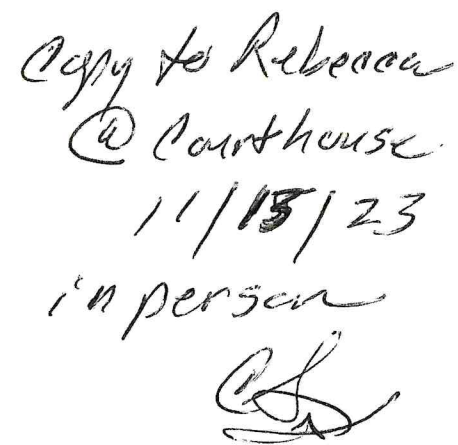 Copy to Rebecca
@ Courthouse
11/15/23
in person